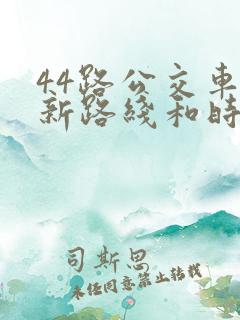 44路公交车
新路线和时
司斯思
未经同意禁止转载